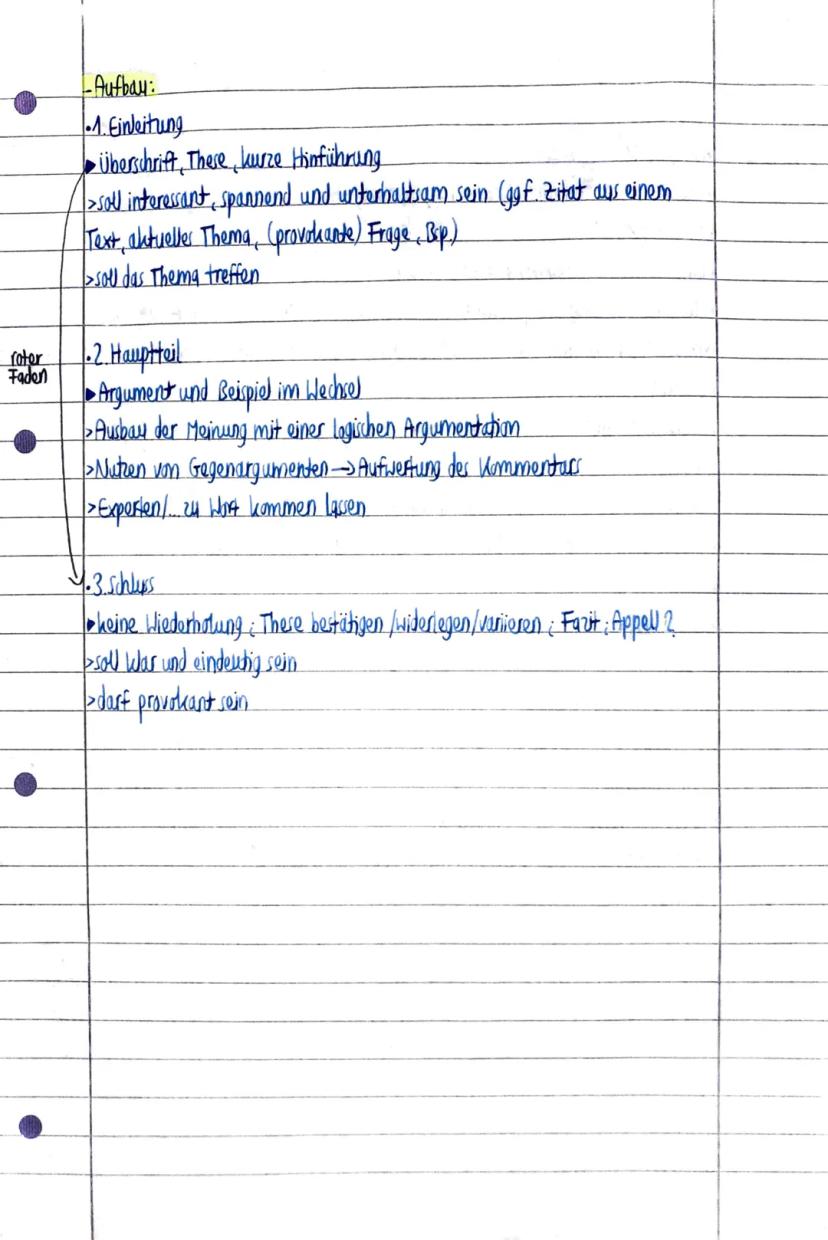 - Aufbau:
•1. Einleitung
▶Überschrift, These, kurze Hinführung
>soll interessant, spannend und unterhaltsam sein (ggf. Zitat aus einem
Text, aktuelles Thema, (provokante) Frage, Bsp.)
>soll das Thema treffen
roter
Faden
•2. Hauptteil
▶Argument und Beispiel im Wechsel
>Ausbau der Meinung mit einer logischen Argumentation
>Nutzen von Gegenargumenten→Aufwertung des Kommentars
>Experten/... zu Wort kommen lassen
•3. Schluss
▶keine Wiederholung; These bestätigen/widerlegen/variieren; Fazit; Appell?
>soll klar und eindeutig sein
>darf provokant sein